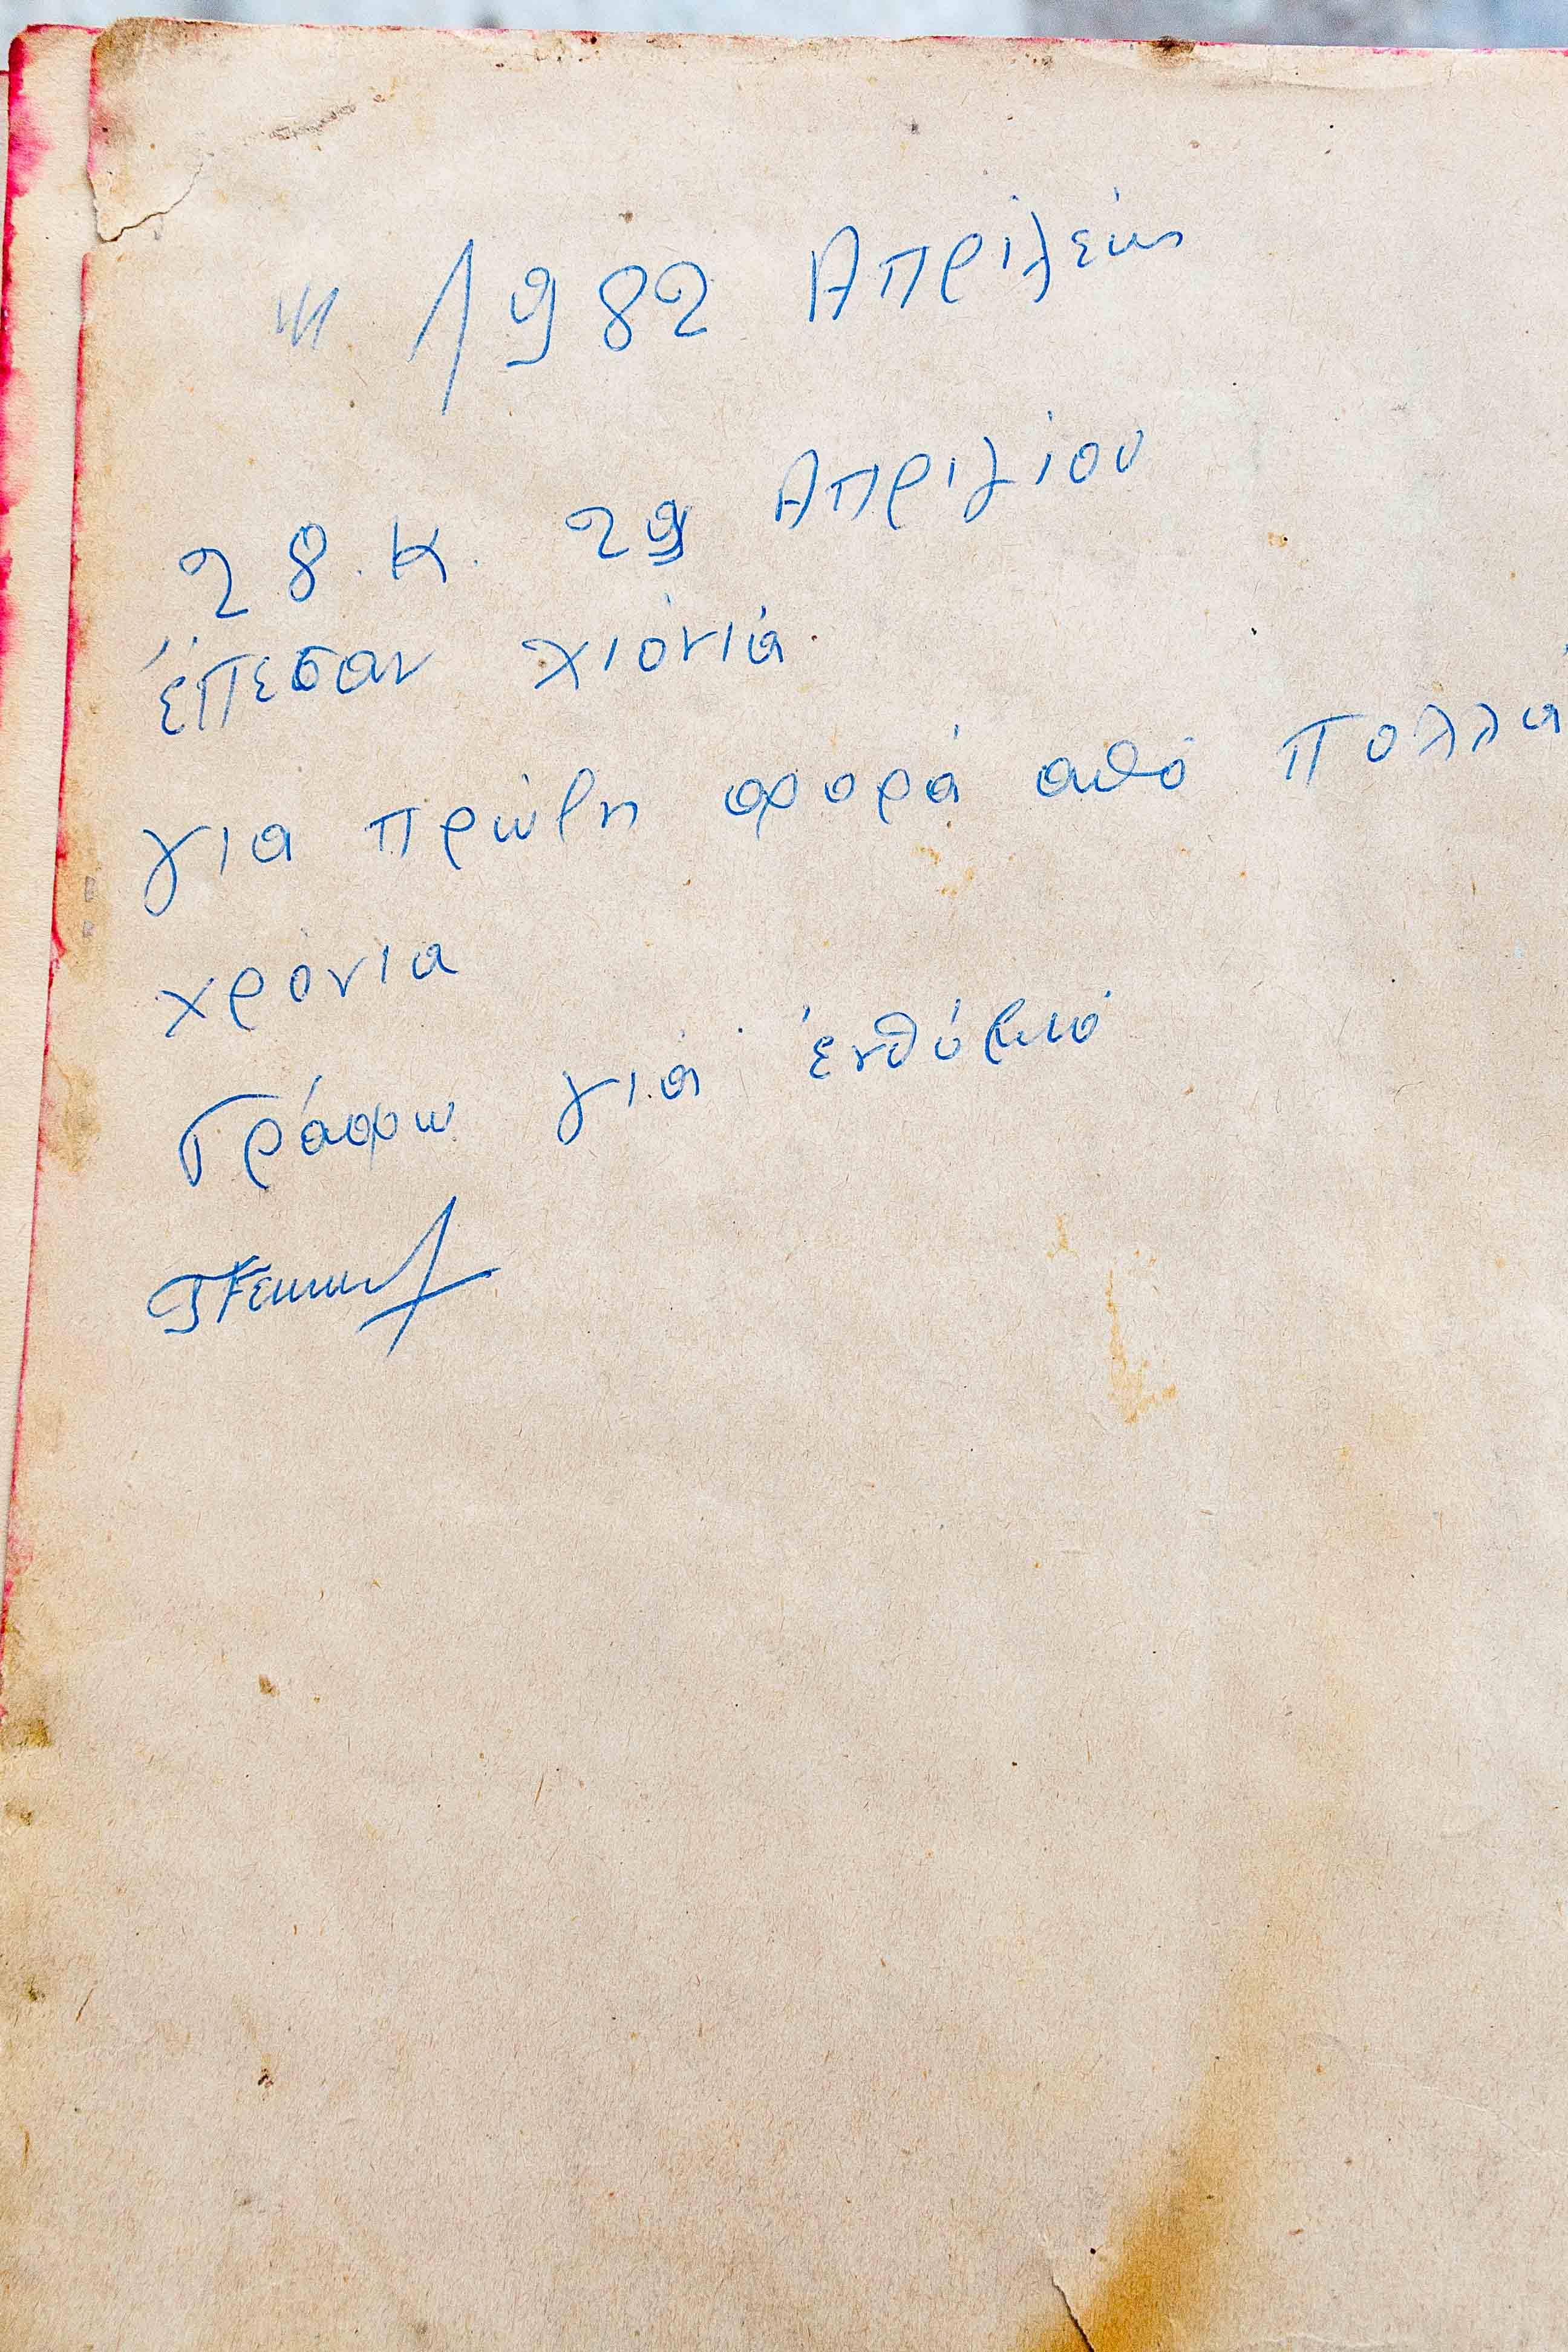 1982 Απρίλειος
28. Κ. 29 Απριλίου
έπεσαν χιόνιά
για πρώτη φορά από πολλά
χρόνια
Γράφω γιά ένθύμιο